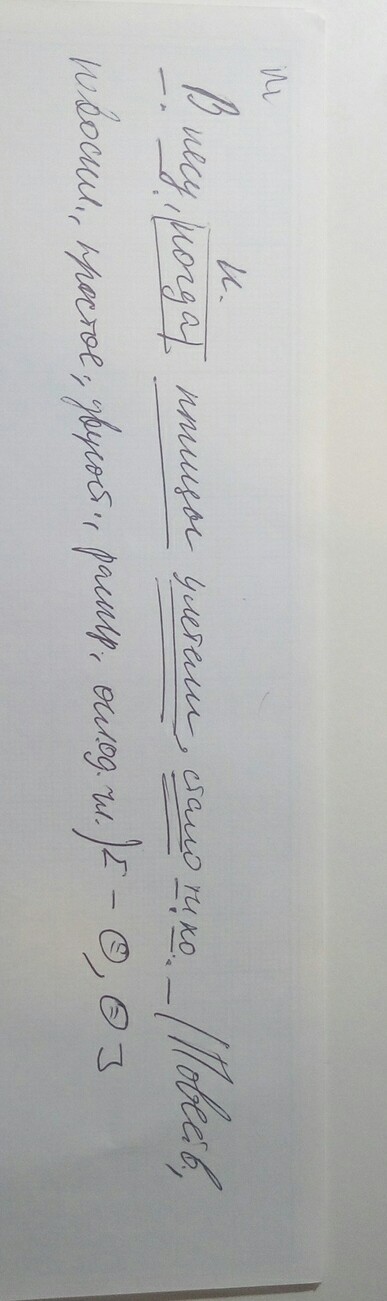 и.
В лесу, [когда] птицы улетали, стало тихо. – (Повеств,
невоскл., простое, двусост., распр., однод. чл.) [ – ⊜, ⊜ ]